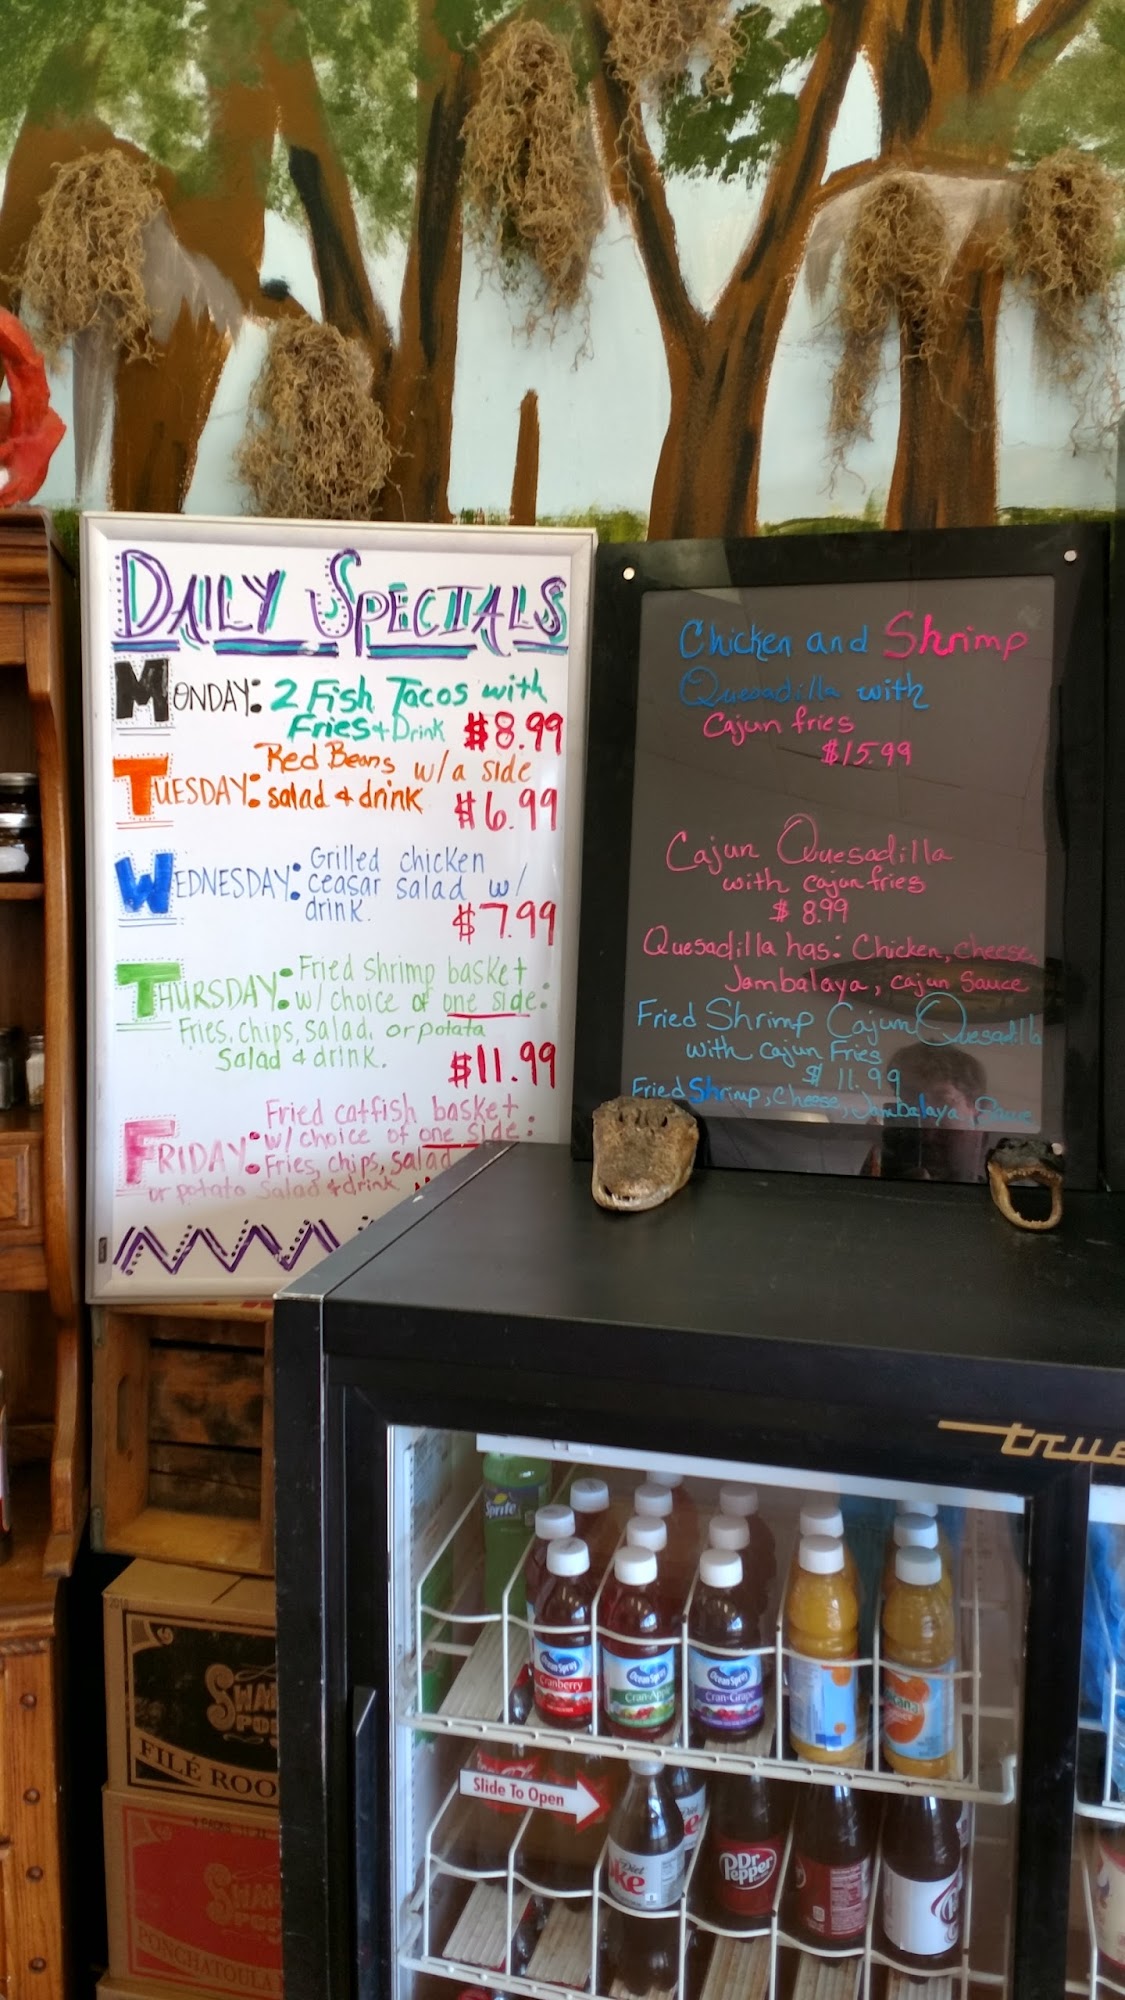 DAILY SPECIALS
MONDAY: 2 Fish Tacos with
Fries + Drink $8.99
TUESDAY: Red Beans w/a side
salad & drink $6.99
WEDNESDAY: Grilled chicken
ceasar salad w/
drink. $7.99
THURSDAY: Fried shrimp basket
w/choice of one side:
Fries, chips, salad, or potata
Salad & drink. $11.99
FRIDAY: Fried catfish basket
w/choice of one side:
Fries, chips, salad
or potato salad & drink
Chicken and Shrimp
Quesadilla with
Cajun fries
$15.99
Cajun Quesadilla
with cajun fries
$ 8.99
Quesadilla has: Chicken, cheese,
Jambalaya, cajun sauce
Fried Shrimp Cajun Quesadilla
with cajun Fries
$ 11.99
Fried Shrimp, Cheese, Jambalaya, Sauce
true
Sprite
Ocean Spray
Cranberry
Ocean Spray
Cran-Apple
Ocean Spray
Cran-Grape
Slide To Open
Diet
Coke
Dr
Pepper
FILÉ ROO
PONCHATOULA